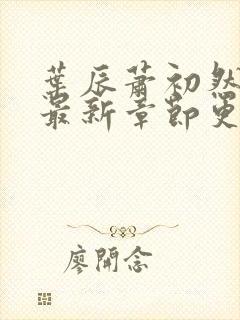 葉辰蕭初然
最新章節更
廖開念